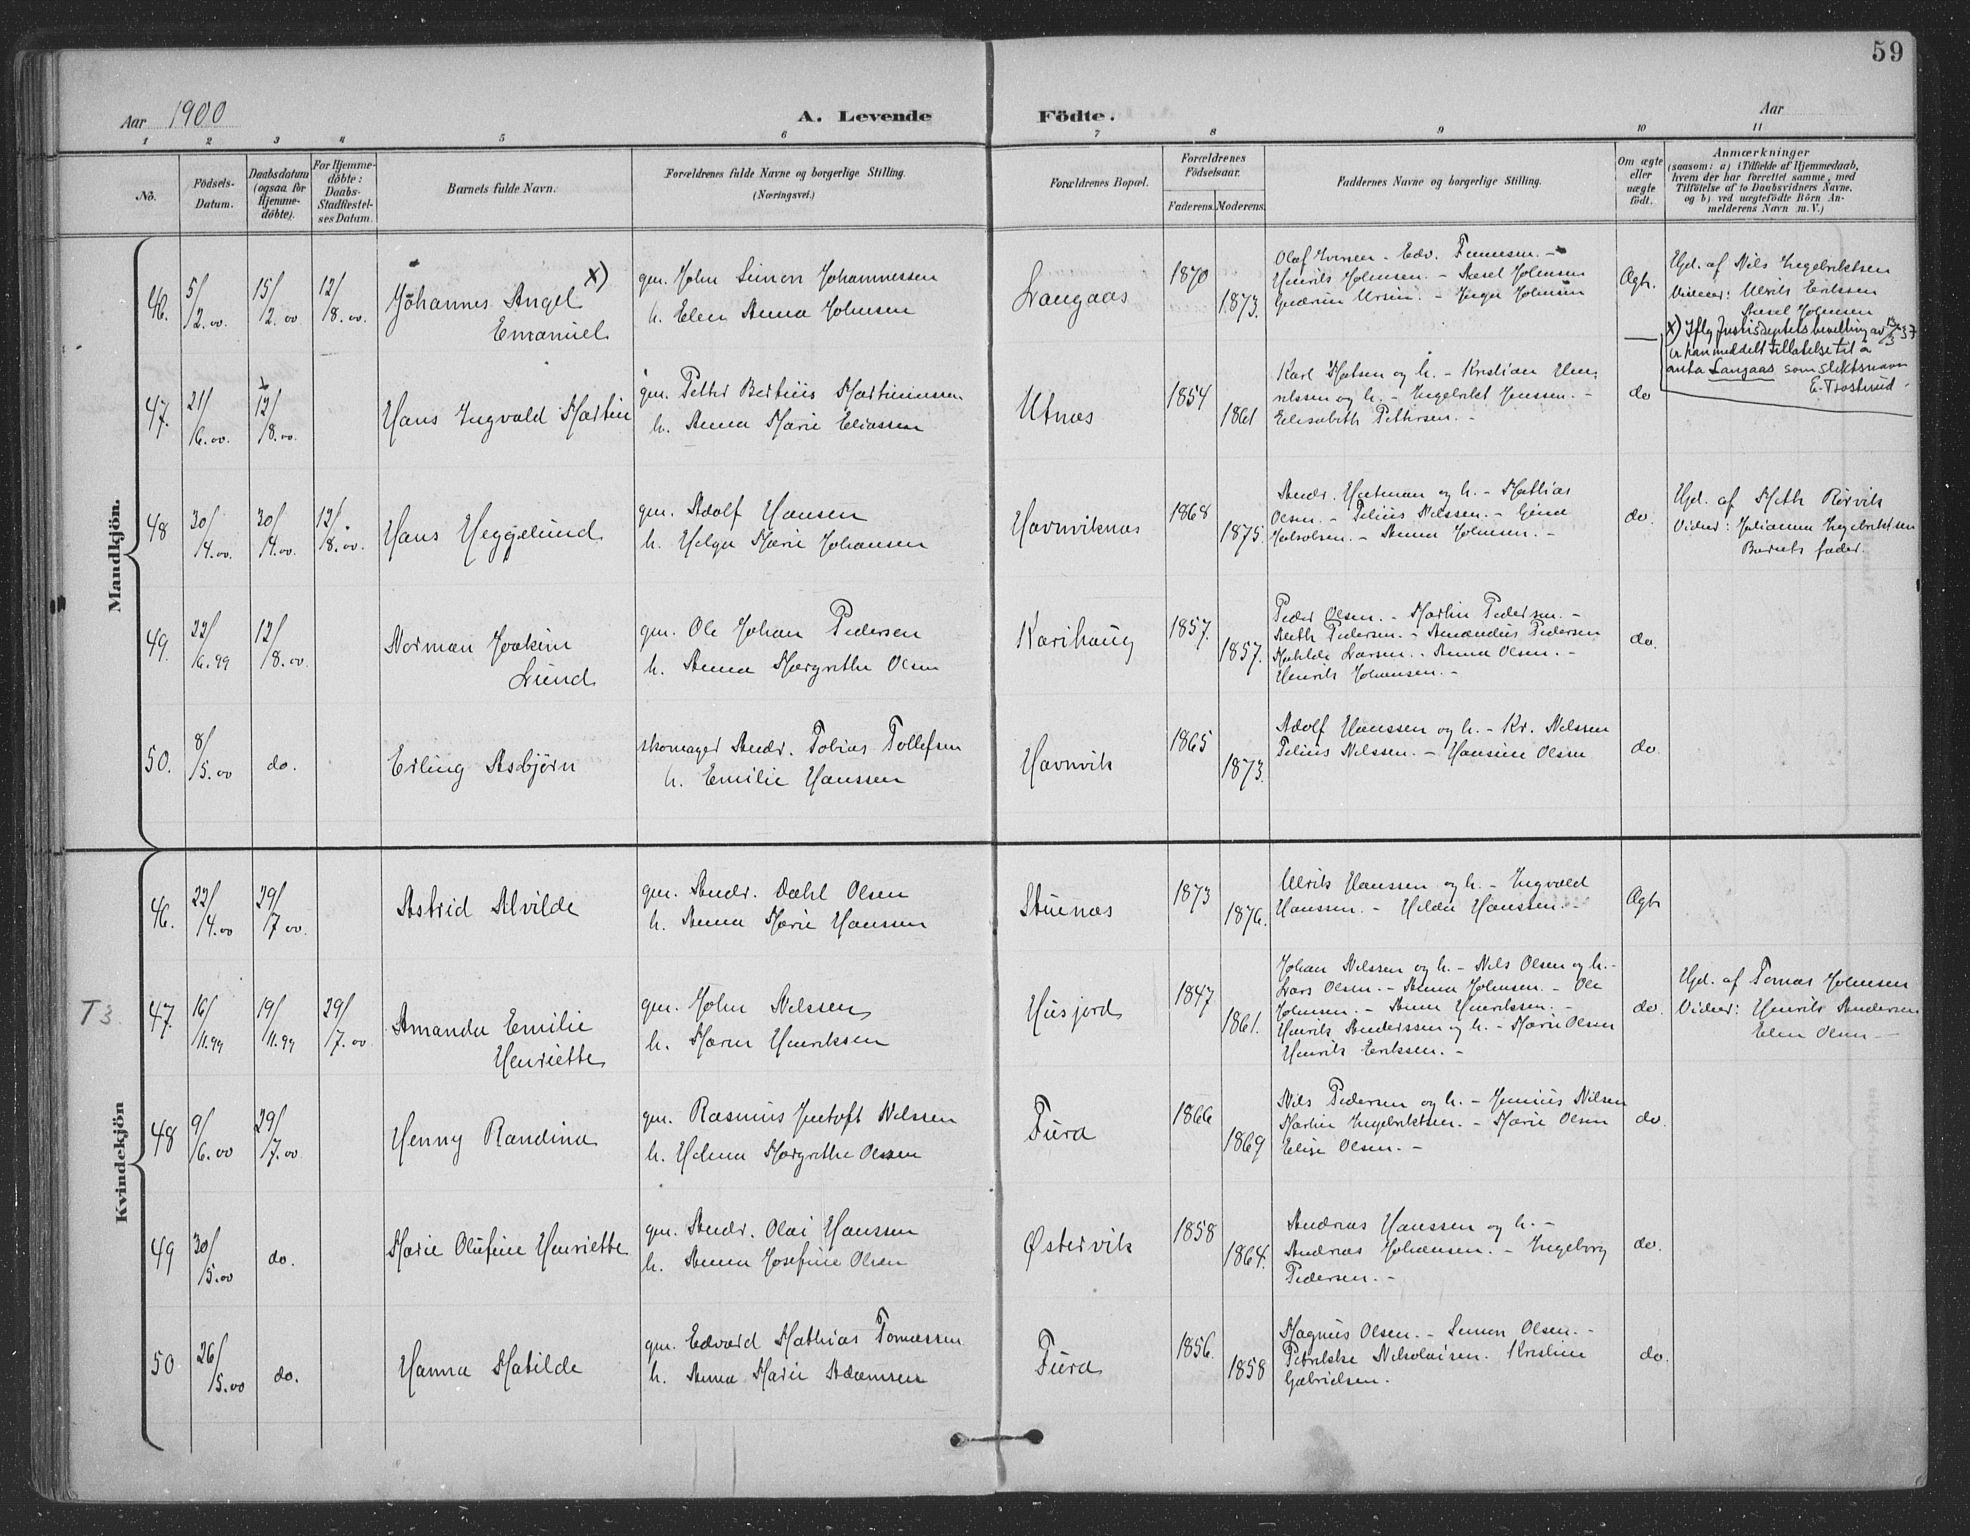 59
Aar 1900
A. Levende
Födte.
Aar
1 2 3 4 5 6 7 8 9 10 11
No.
Födsels-
Datum.
Daabsdatum
(ogsaa for
Hjemme-
döbte).
For Hjemme-
döbte:
Daabs-
Stadfæstel-
ses Datum.
Barnets fulde Navn.
Forældrenes fulde Navne og borgerlige Stilling.
(Næringsvei.)
Forældrenes Bopæl.
Forældrenes
Födselsaar.
Faderens. Moderens.
Faddernes Navne og borgerlige Stilling.
Om ægte
eller
uægte
födt.
Anmærkninger
(saasom: a) i Tilfælde af Hjemmedaab,
hvem der har forrettet samme, med
Tilföielse af to Daabsvidners Navne,
og b) ved uægtefödte Börn An-
melderens Navn m. V.)
Mandkjön.
46. 5/12.00 15/12.00 12/8.00
Johannes Angel x)
Emanuel
gm. John Simon Johannessen
h. Elen Anna Johnsen
Langaas
1870
1873.
Olaf Iversen - Edv. Tomesen. -
Henrik Johnsen. - Axel Johnsen
Gudrun Ursin. - Inga Johnsen
Ægte.
Hjd. af Nils Ingebriktsen
Vidner: Ulrik Eriksen
Axel Johnsen
x) Iflg Justisdeptets bevilling av 13/3 37
er han meddelt tillatelse til å
anta Langaas som slektsnavn
E. Trostrud.
47. 21/6.00 12/8.00
Hans Ingvald Martin
gm. Petter Bertius Martinussen
h. Anna Marie Eliassen
Utnæs
1854
1861
Karl Matsen og h. - Kristian Hen-
rikssen og h. - Ingebrikt Jenssen. -
Elisabeth Pettersen. -
do
48 30/4.00 30/4.00 12/8.00
Hans Heggelund
gm. Adolf Hansen
h. Helga Marie Johansen
Havnviknæs
1868
1875.
Andr. Hatman og h. - Mathias
Olsen. - Pelius Nilssen. - Gina
- Anna Johnsen. -
do.
Hjd. af Meth Rörvik
Vidner: Julianna Ingebriktsen
Barnets fader.
49. 22/6.99 12/8.00
Norman Joakim
Lund
gm. Ole Johan Pedersen
h. Anna Margrethe Olsen
Karihaug
1857.
1857.
Peder Olsen. - Martin Pedersen. -
Meth Pedersen. - Amandus Pedersen
Mathilde Larsen. - Anna Olsen. -
Henrik Johansen. -
do.
50. 8/5.00 do.
Erling Asbjørn
skomager Andr. Tobias Tollefsen
h. Emilie Hanssen
Havnvik
1865
1873.
Adolf Hanssen og h. - Kr. Nilssen
Pelius Nilssen. - Hansine Olsen
do.
Kvindekjön
46. 22/4.00 29/7.00
Astrid Alvilde
gm. Andr. Dahl Olsen
h. Anna Marie Hanssen
Stuenæs
1873
1876.
Ulrik Hanssen og h. - Ingvald
Hanssen. - Hilda Hanssen. -
Ægte
T3.
47. 16/11.99 19/11.99 29/7.00
Amanda Emilie
Henriette
gm. John Nilssen
h. Maren Henriksen
Husjord
1847
1861.
Johan Nilssen og h. - Nils Olsen og h. -
Lars Olsen. - Anna Johnsen. - Ole
Johnsen. - Anna Henrikssen. -
Henrik Anderssen og h. - Marie Olsen
Henrik Erikssen. -
do.
Hjd. af Tomas Johnsen
Vidner: Henrik Andersen
Elen Olsen -
48 9/6.00 29/7.00
Henny Randina
gm. Rasmus Jentoft Nilssen
h. Helena Margrethe Olsen
Furø
1866
1869
Nils Pedersen og h. - Jenius Nilsen
Martin Ingebriktsen. - Marie Olsen
Elise Olsen. -
do.
49 30/5.00 do.
Marie Olufine Henriette
gm. Andr. Olai Hanssen
h. Anna Josefine Olsen
Østervik
1858
1864.
Andreas Hanssen og h. -
Andreas Johansen. - Ingeborg
Pedersen. -
do.
50 26/5.00 do.
Hanna Matilde
gm. Edvard Mathias Tomassen
h. Anna Marie Adamsen
Furø
1856.
1858
Magnus Olsen. - Simon Olsen. -
Petrikke Nikolaisen. Kristine
Gabrielsen.
do.